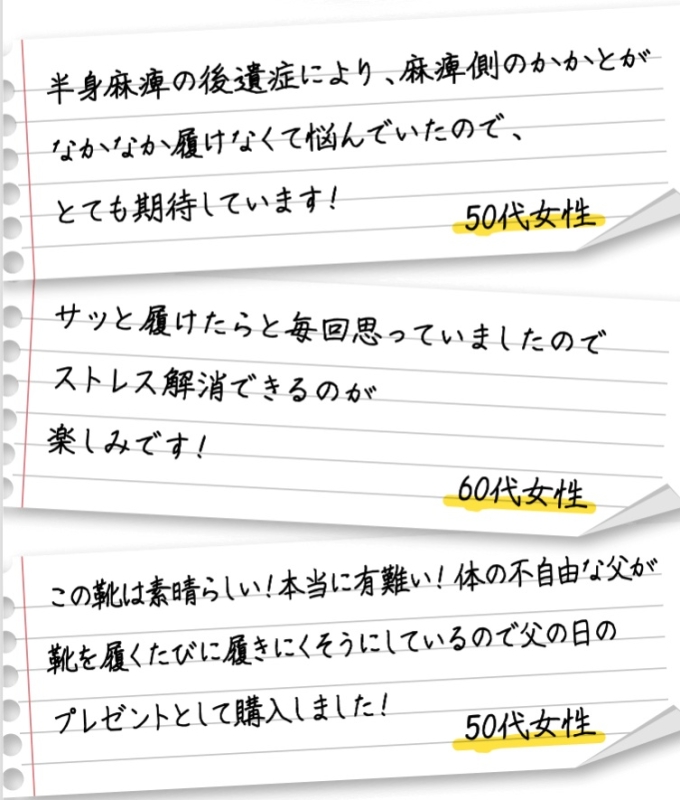 半身麻痺の後遺症により、麻痺側のかかとが
なかなか履けなくて悩んでいたので、
とても期待しています!
50代女性
サッと履けたらと毎回思っていましたので
ストレス解消できるのが
楽しみです!
60代女性
この靴は素晴らしい!本当に有難い!体の不自由な父が
靴を履くたびに履きにくそうにしているので父の日の
プレゼントとして購入しました!
50代女性